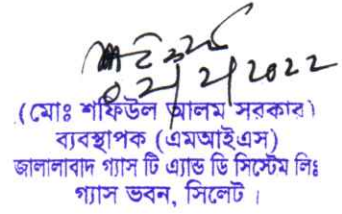 ০২/২/২০২২
(মোঃ শফিউল আলম সরকার)
ব্যবস্থাপক (এমআইএস)
জালালাবাদ গ্যাস টি এ্যান্ড ডি সিস্টেম লিঃ
গ্যাস ভবন, সিলেট।